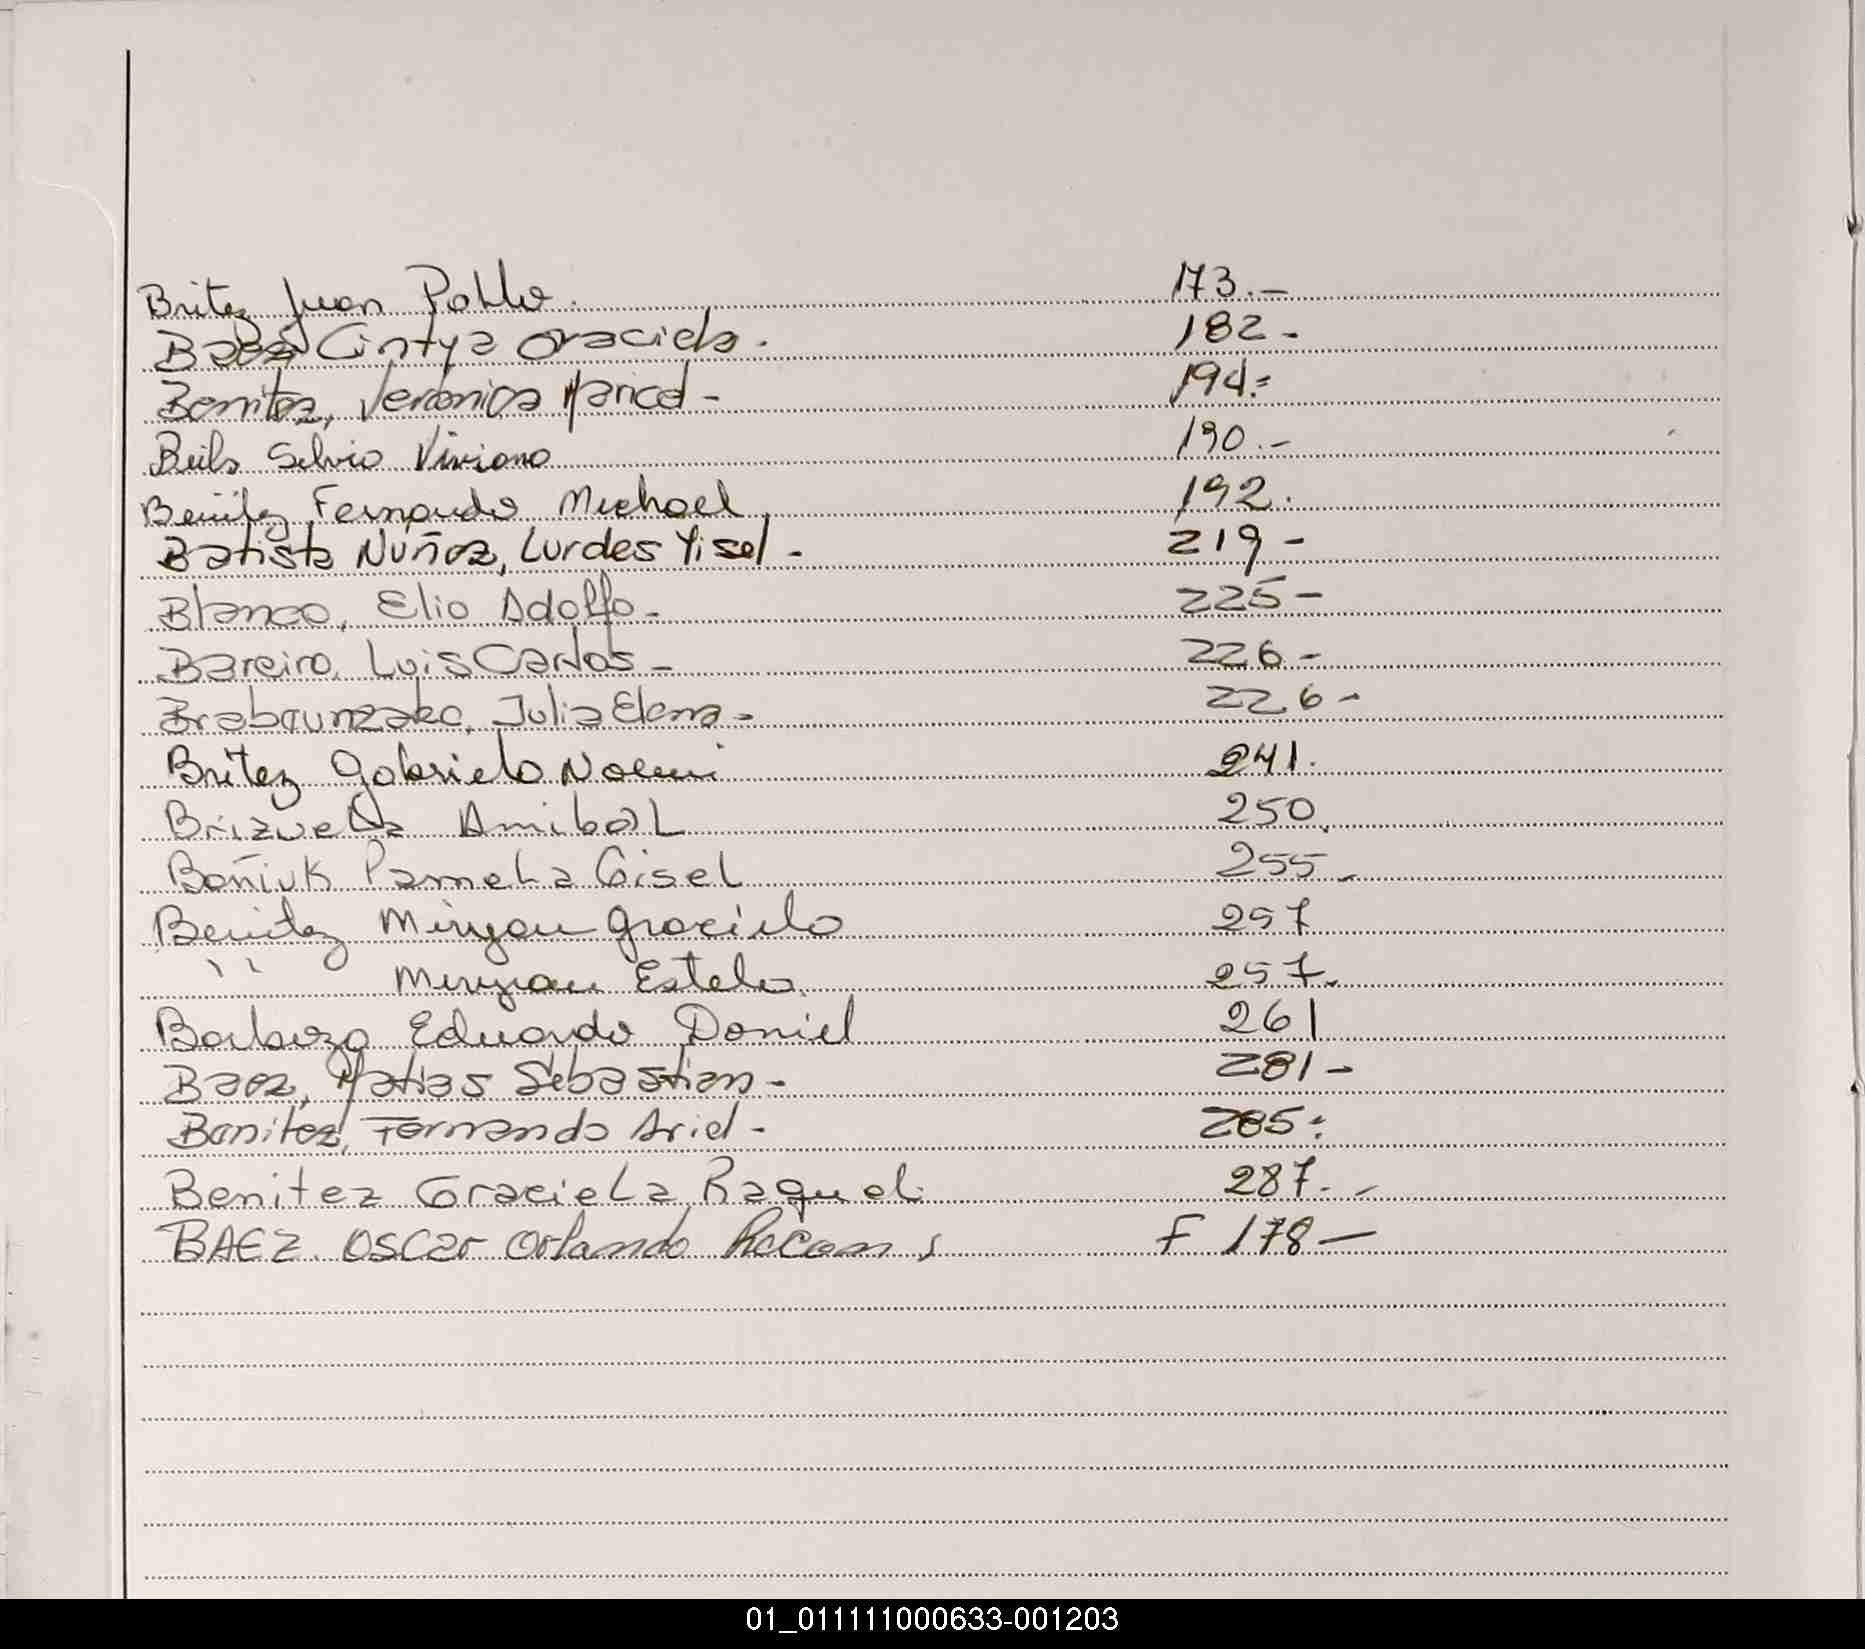 Britez Juan Pablo. 173.-
Baez Cintya Graciela. 182-
Benitez, Veronica Maricel- 194:
Beils Silvia Viviana 190.-
Benitez Fernando Michael 192.
Batista Nuñez, Lurdes Yisel- 219-
Blanco, Elio Adolfo- 225-
Bareiro, Luis Carlos- 226-
Julia Elena- 226-
Britez Gabriela Noemi 241.
Brizuela Anibal 250.
Boñiuk Pamela Gisel 255.
Benitez Miryan Graciela 257
" Miryian Estela. 257.
Barboza Eduardo Daniel 261
Baez, Matias Sebastian- 281-
Benitez, Fernando Ariel- 285:
Benitez Graciela Raquel. 287.-
BAEZ. OSCar Orlando F 178-
01_011111000633-001203